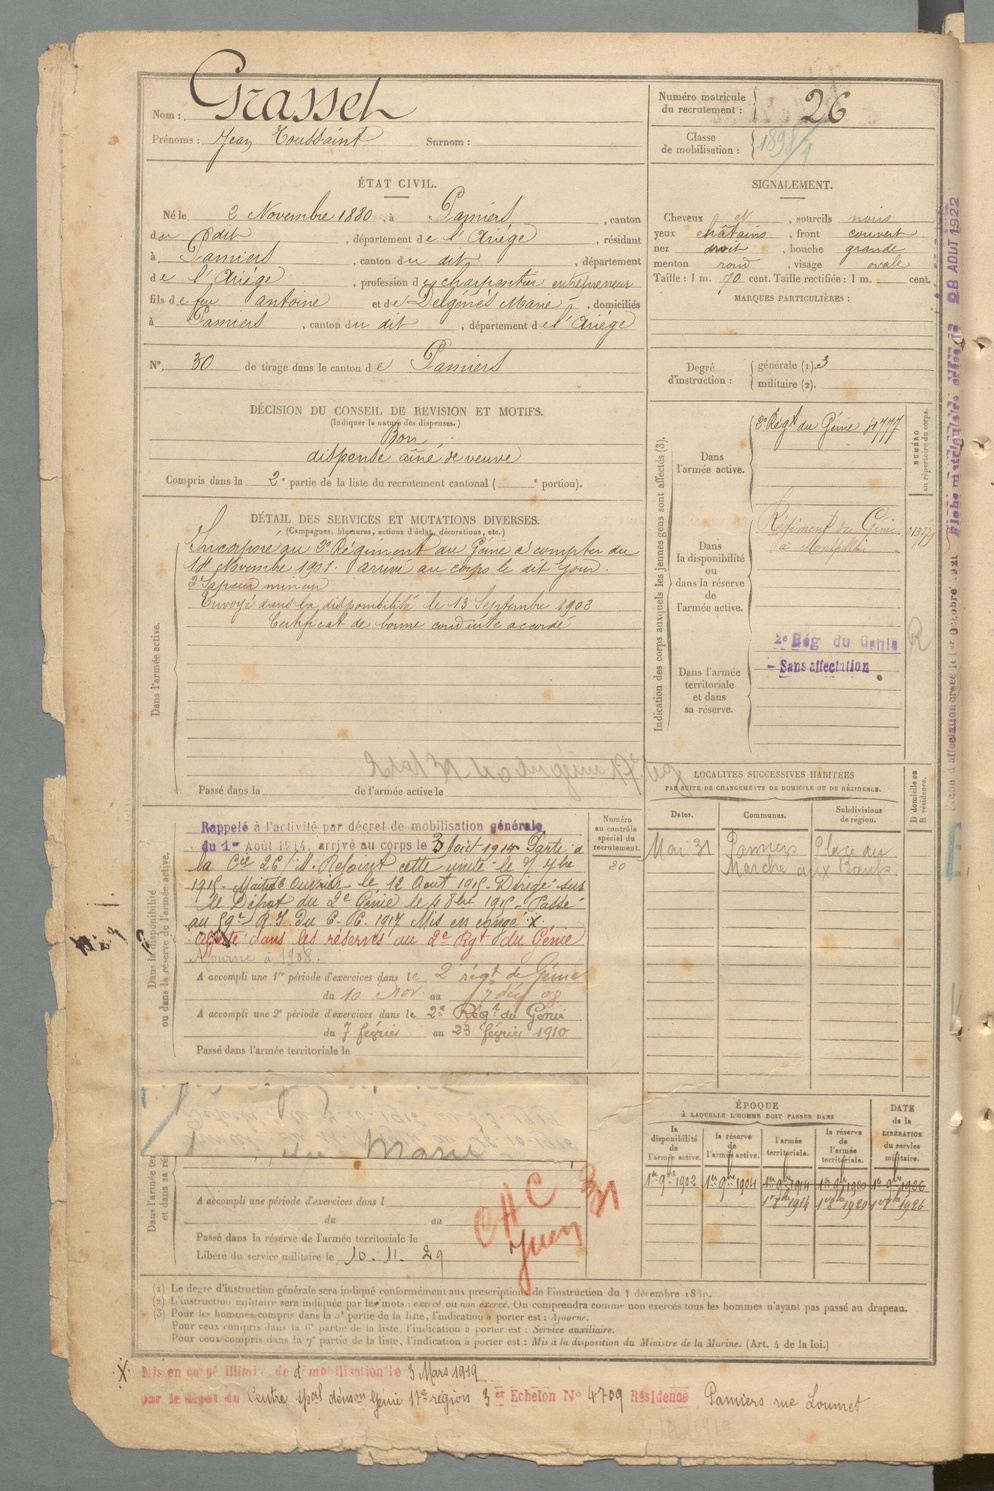 Nom : Grasset
Prénoms : Jean Toussaint Surnom :
Numéro matricule du recrutement : 26
Classe de mobilisation :
ÉTAT CIVIL.
Né le 2 Novembre 1880, à Pamiers, canton
du dit, département de l'Ariège, résidant
à Pamiers, canton du dit, département
de l'Ariége, profession de charpentier entrepreneur
fils de feu antoine et de Delgénés Marie, domiciliés
à Pamiers, canton du dit, département de l'Ariége
N°. 30 de tirage dans le canton de Pamiers
SIGNALEMENT.
Cheveux et, sourcils noirs
yeux chatains, front couvert
nez droit, bouche grande
menton rond, visage ovale
Taille : 1 m. 70 cent. Taille rectifiée : 1 m. cent.
MARQUES PARTICULIÈRES :
Degré d'instruction : générale (1). 3
militaire (2).
DÉCISION DU CONSEIL DE REVISION ET MOTIFS.
(Indiquer la nature des dispenses.)
Bon
dispensé aîné de veuve
Compris dans la 2e partie de la liste du recrutement cantonal ( e portion).
DÉTAIL DES SERVICES ET MUTATIONS DIVERSES.
(Campagnes, blessures, actions d'éclat, décorations, etc.)
Dans l'armée active.
Incorporé au 2e Régiment du Génie à compter du
14 Novembre 1901. arrivé au corps le dit jour.
2e Sapeur mineur
Envoyé dans la disponibilité le 13 Septembre 1902
Certificat de bonne conduite accordé
Passé dans la de l'armée active le
Indication des corps auxquels les jeunes gens sont affectés (3).
NUMÉRO au répertoire du corps.
Dans l'armée active.
2e Régt du Génie
Dans la disponibilité ou dans la réserve de l'armée active.
Régiment du Génie
à Montpellier
Dans l'armée territoriale et dans sa réserve.
2e Rég du Génie
Sans affectation
R
Dans la disponibilité ou dans la réserve de l'armée active.
Rappelé à l'activité par décret de mobilisation générale
du 1er Août 1914, arrivé au corps le 3 Août 1914 Parti à
la Cie 26/ M. Rejoint cette unité le
1915. Maitre Ouvrier le 12 Aout 1915. Dirigé sur
le Dépot du 2e Génie le 1915 - Passé
au R.I. du 1917 Mis en congé X
Affecté dans les réserves au 2e Rgt du Génie
Ajourné à 1908.
A accompli une 1re période d'exercices dans le 2e régt de Génie
du 10 Nov. au 7 déc 08
A accompli une 2e période d'exercices dans le 2e Régt du Génie
du 7 février au 23 février 1910
Passé dans l'armée territoriale le
Numéro au contrôle spécial du recrutement.
20
LOCALITÉS SUCCESSIVES HABITÉES
PAR SUITE DE CHANGEMENTS DE DOMICILE OU DE RÉSIDENCE.
Dates. Communes. Subdivisions de région. D domicile ou R résidence.
Mai 31 Pamiers Place du
Marché aux Bœufs
Marié
A accompli une période d'exercices dans l
du au
Passé dans la réserve de l'armée territoriale le
Libéré du service militaire le 10.11.29
CHC 31
Juin
ÉPOQUE
À LAQUELLE L'HOMME DOIT PASSER DANS
DATE de la LIBÉRATION du service militaire.
la disponibilité de l'armée active. la réserve de l'armée active. l'armée territoriale. la réserve de l'armée territoriale.
1er 9bre 1902 1er 9bre 1904 1er 9bre 1914 1er 9bre 1920 1er 9bre 1926
1er 8bre 1914 1er 8bre 1920 1er 8bre 1926
(1) Le degré d'instruction générale sera indiqué conformément aux prescriptions de l'instruction du décembre
(2) L'instruction militaire sera indiquée par les mots : exercé ou non exercé. On comprendra comme non exercés tous les hommes n'ayant pas passé au drapeau.
(3) Pour les hommes compris dans la 5e partie de la liste, l'indication à porter est : Ajourné.
Pour ceux compris dans la 6e partie de la liste, l'indication à porter est : Service auxiliaire.
Pour ceux compris dans la 7e partie de la liste, l'indication à porter est : Mis à la disposition du Ministre de la Marine. (Art. 4 de la loi.)
X Mis en congé illimité de démobilisation le 3 Mars 1919
par le dépôt du Centre spal démon Génie 17e région 3er Echelon N° 4709 Résidence Pamiers rue Loumet
28 AOUT 1922